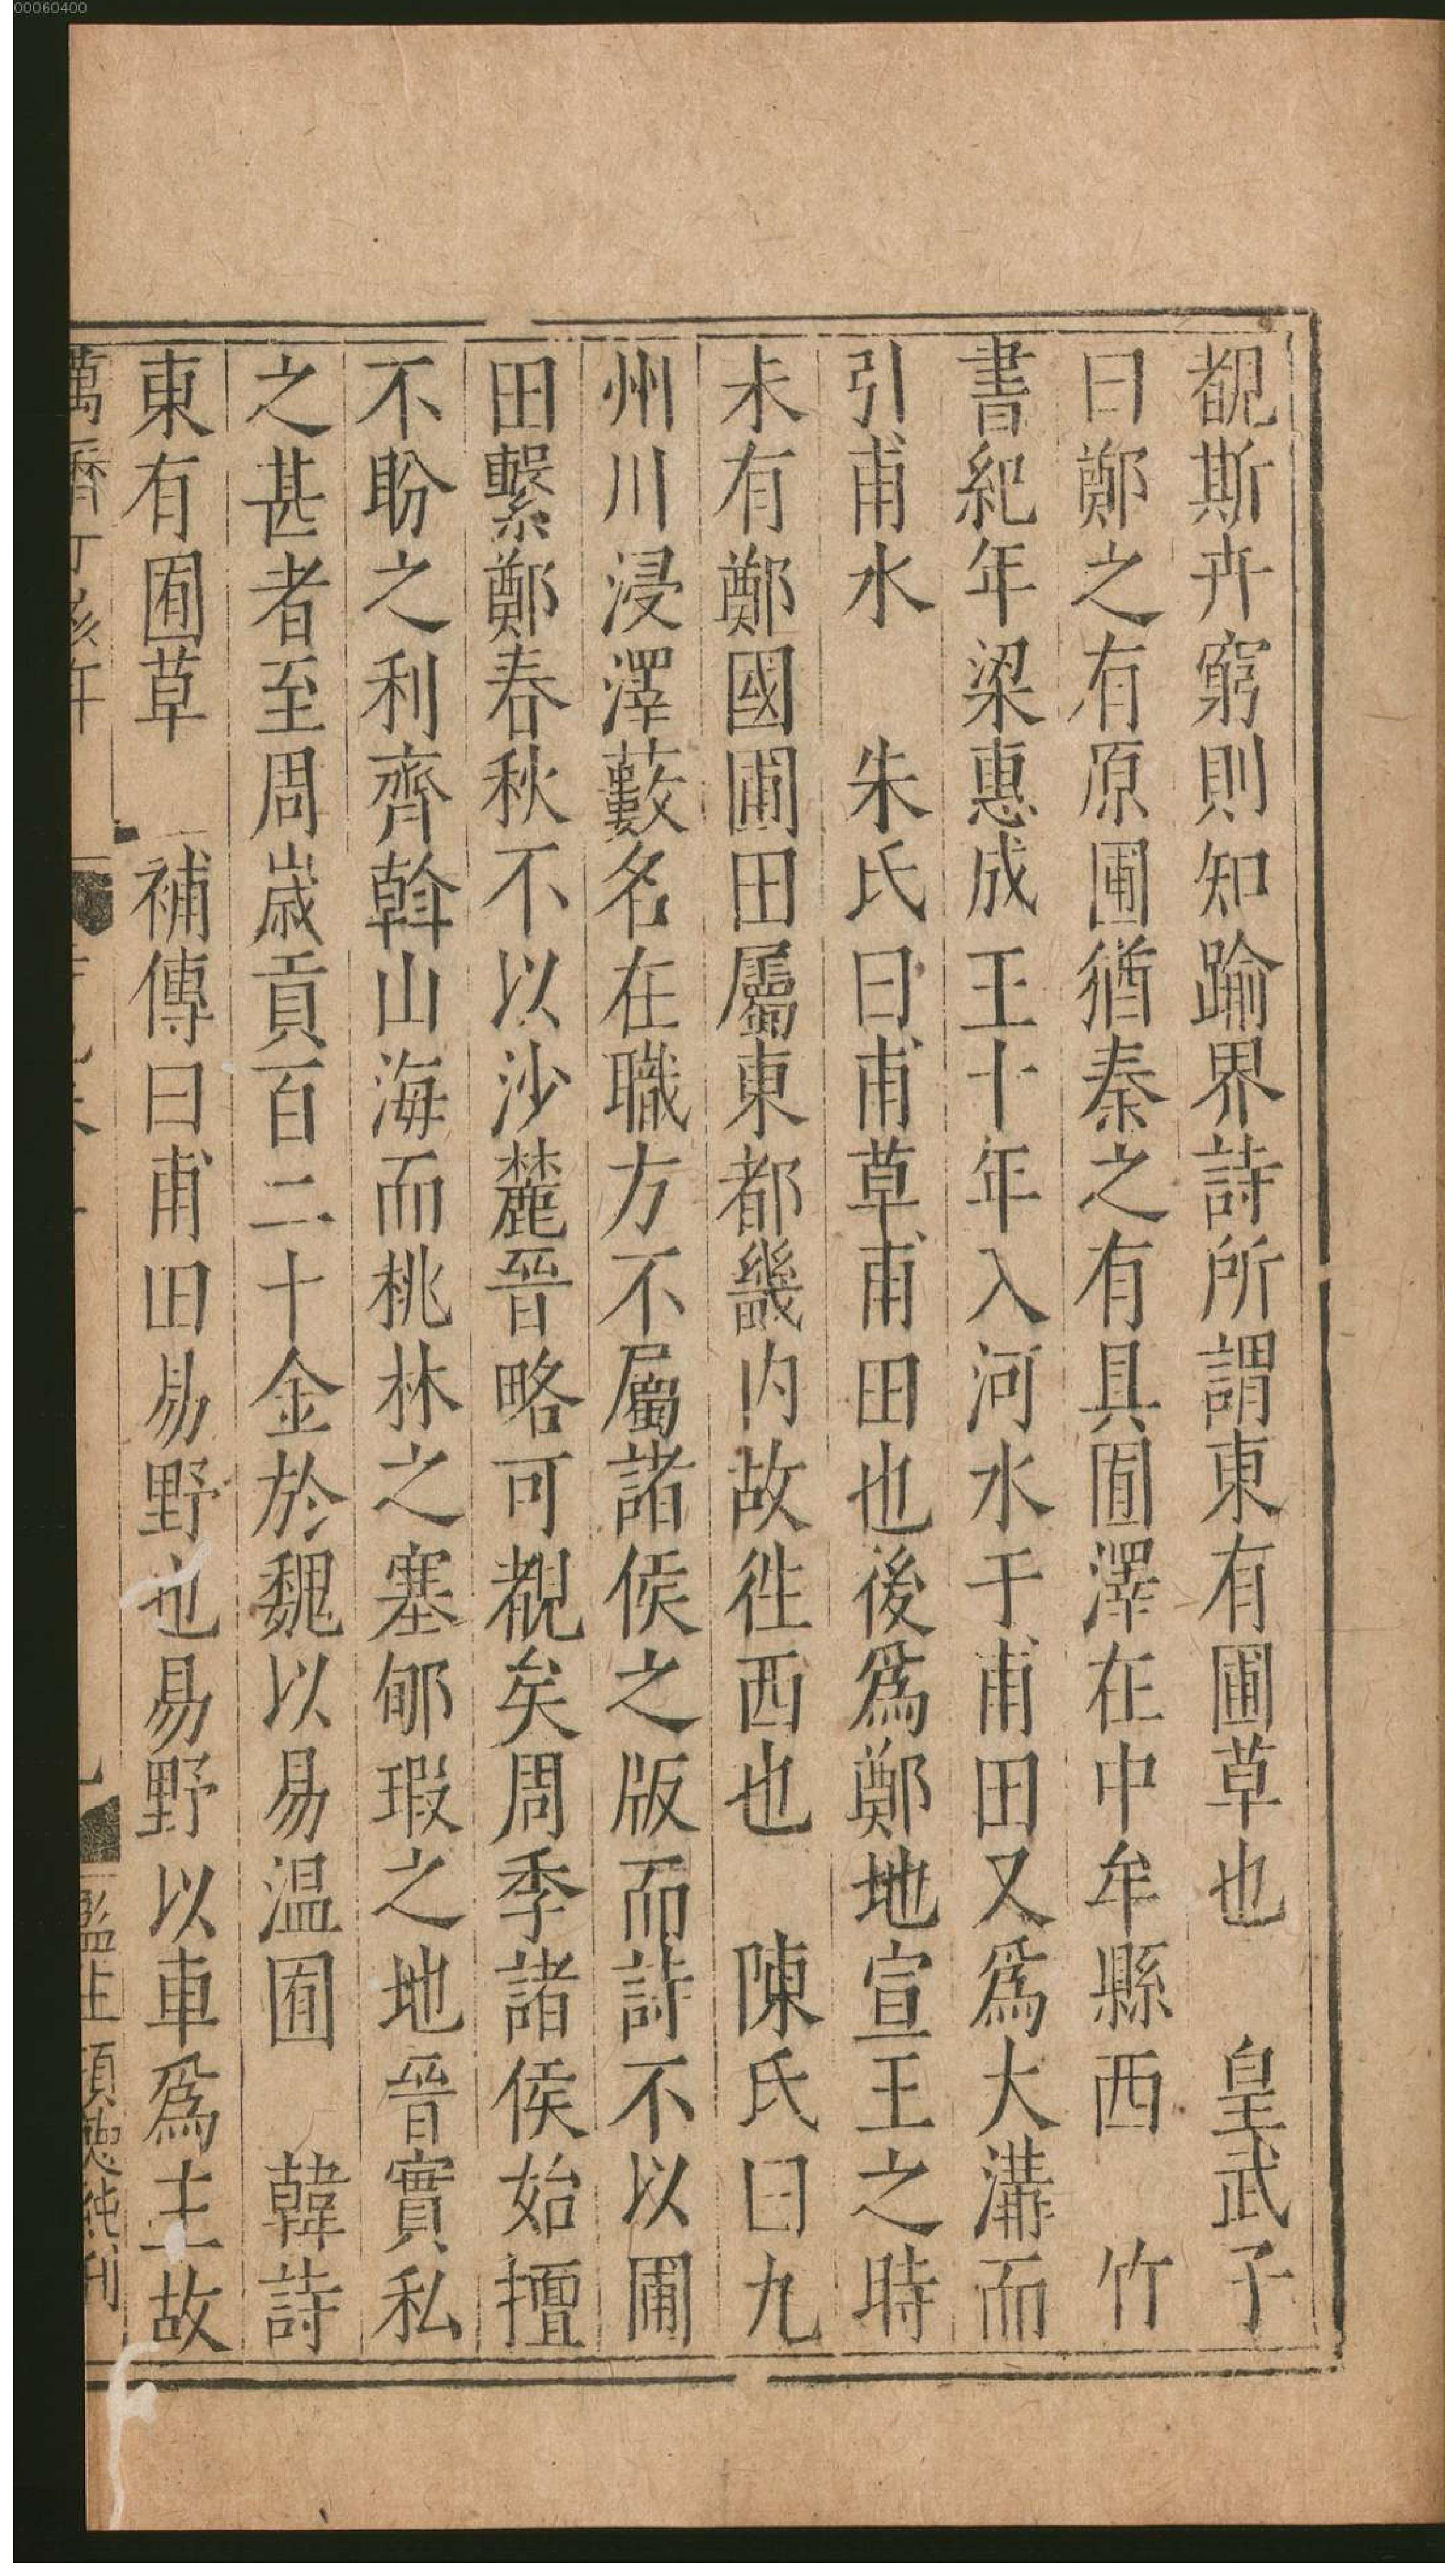 00060400
覩斯卉窮則知踰界詩所謂東有圃草也　皇武子
曰鄭之有原圃猶秦之有具囿澤在中牟縣西　竹
書紀年梁惠成王十年入河水于甫田又爲大溝而
引甫水　朱氏曰甫草甫田也後爲鄭地宣王之時
未有鄭國圃田屬東都畿内故徃西也　陳氏曰九
州川浸澤藪名在職方不屬諸侯之版而詩不以圃
田繫鄭春秋不以沙麓晉略可覩矣周季諸侯始擅
不盼之利齊斡山海而桃林之塞郇瑕之地晉實私
之甚者至周歲貢百二十金於魏以易温囿　韓詩
東有囿草　補傳曰甫田易野也易野以車爲主故
萬曆丁亥年
監生項德純刊